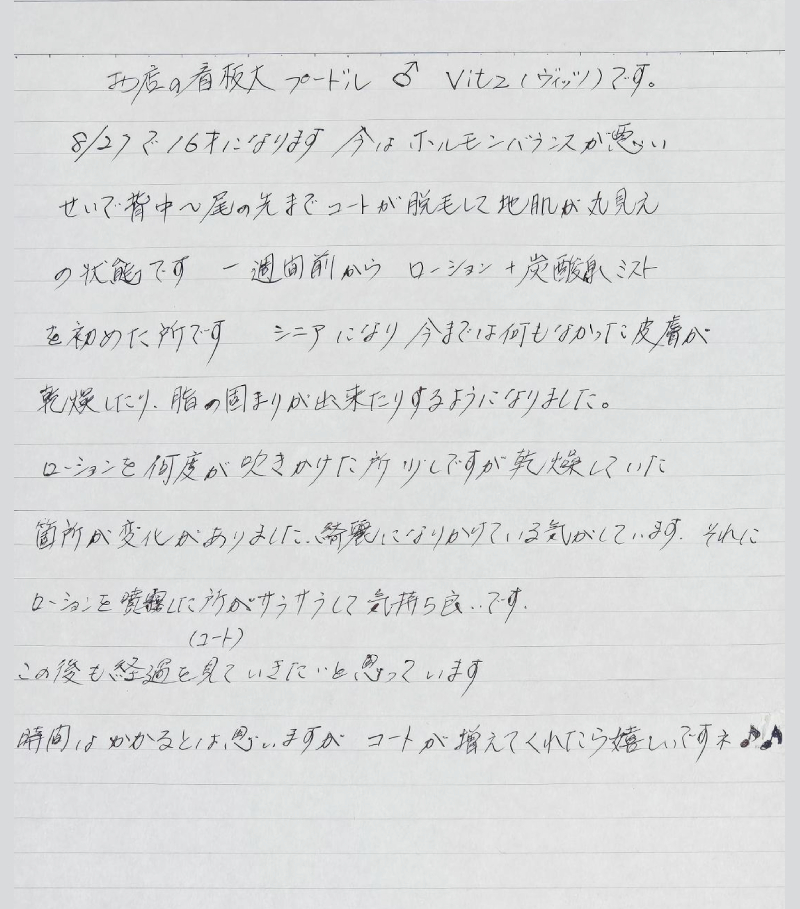 お店の看板犬 プードル ♂ Vitz(ヴィッツ)です。
8/27で16才になります 今は ホルモンバランスが悪い
せいで背中〜尾の先まで コートが脱毛して地肌が丸見え
の状態です 一週間前から ローション+炭酸泉ミスト
を初めた所です シニアになり 今までは何もなかった皮膚が
乾燥したり、脂の固まりが出来たりするようになりました。
ローションを何度か吹きかけた所 少しですが乾燥していた
箇所が変化がありました、綺麗になりかけている気がしています。それに
ローションを噴霧した所がサラサラして気持ち良いです。
(コート)
この後も経過を見ていきたいと思っています
時間はかかるとは思いますが コートが増えてくれたら嬉しいですネ♪♪